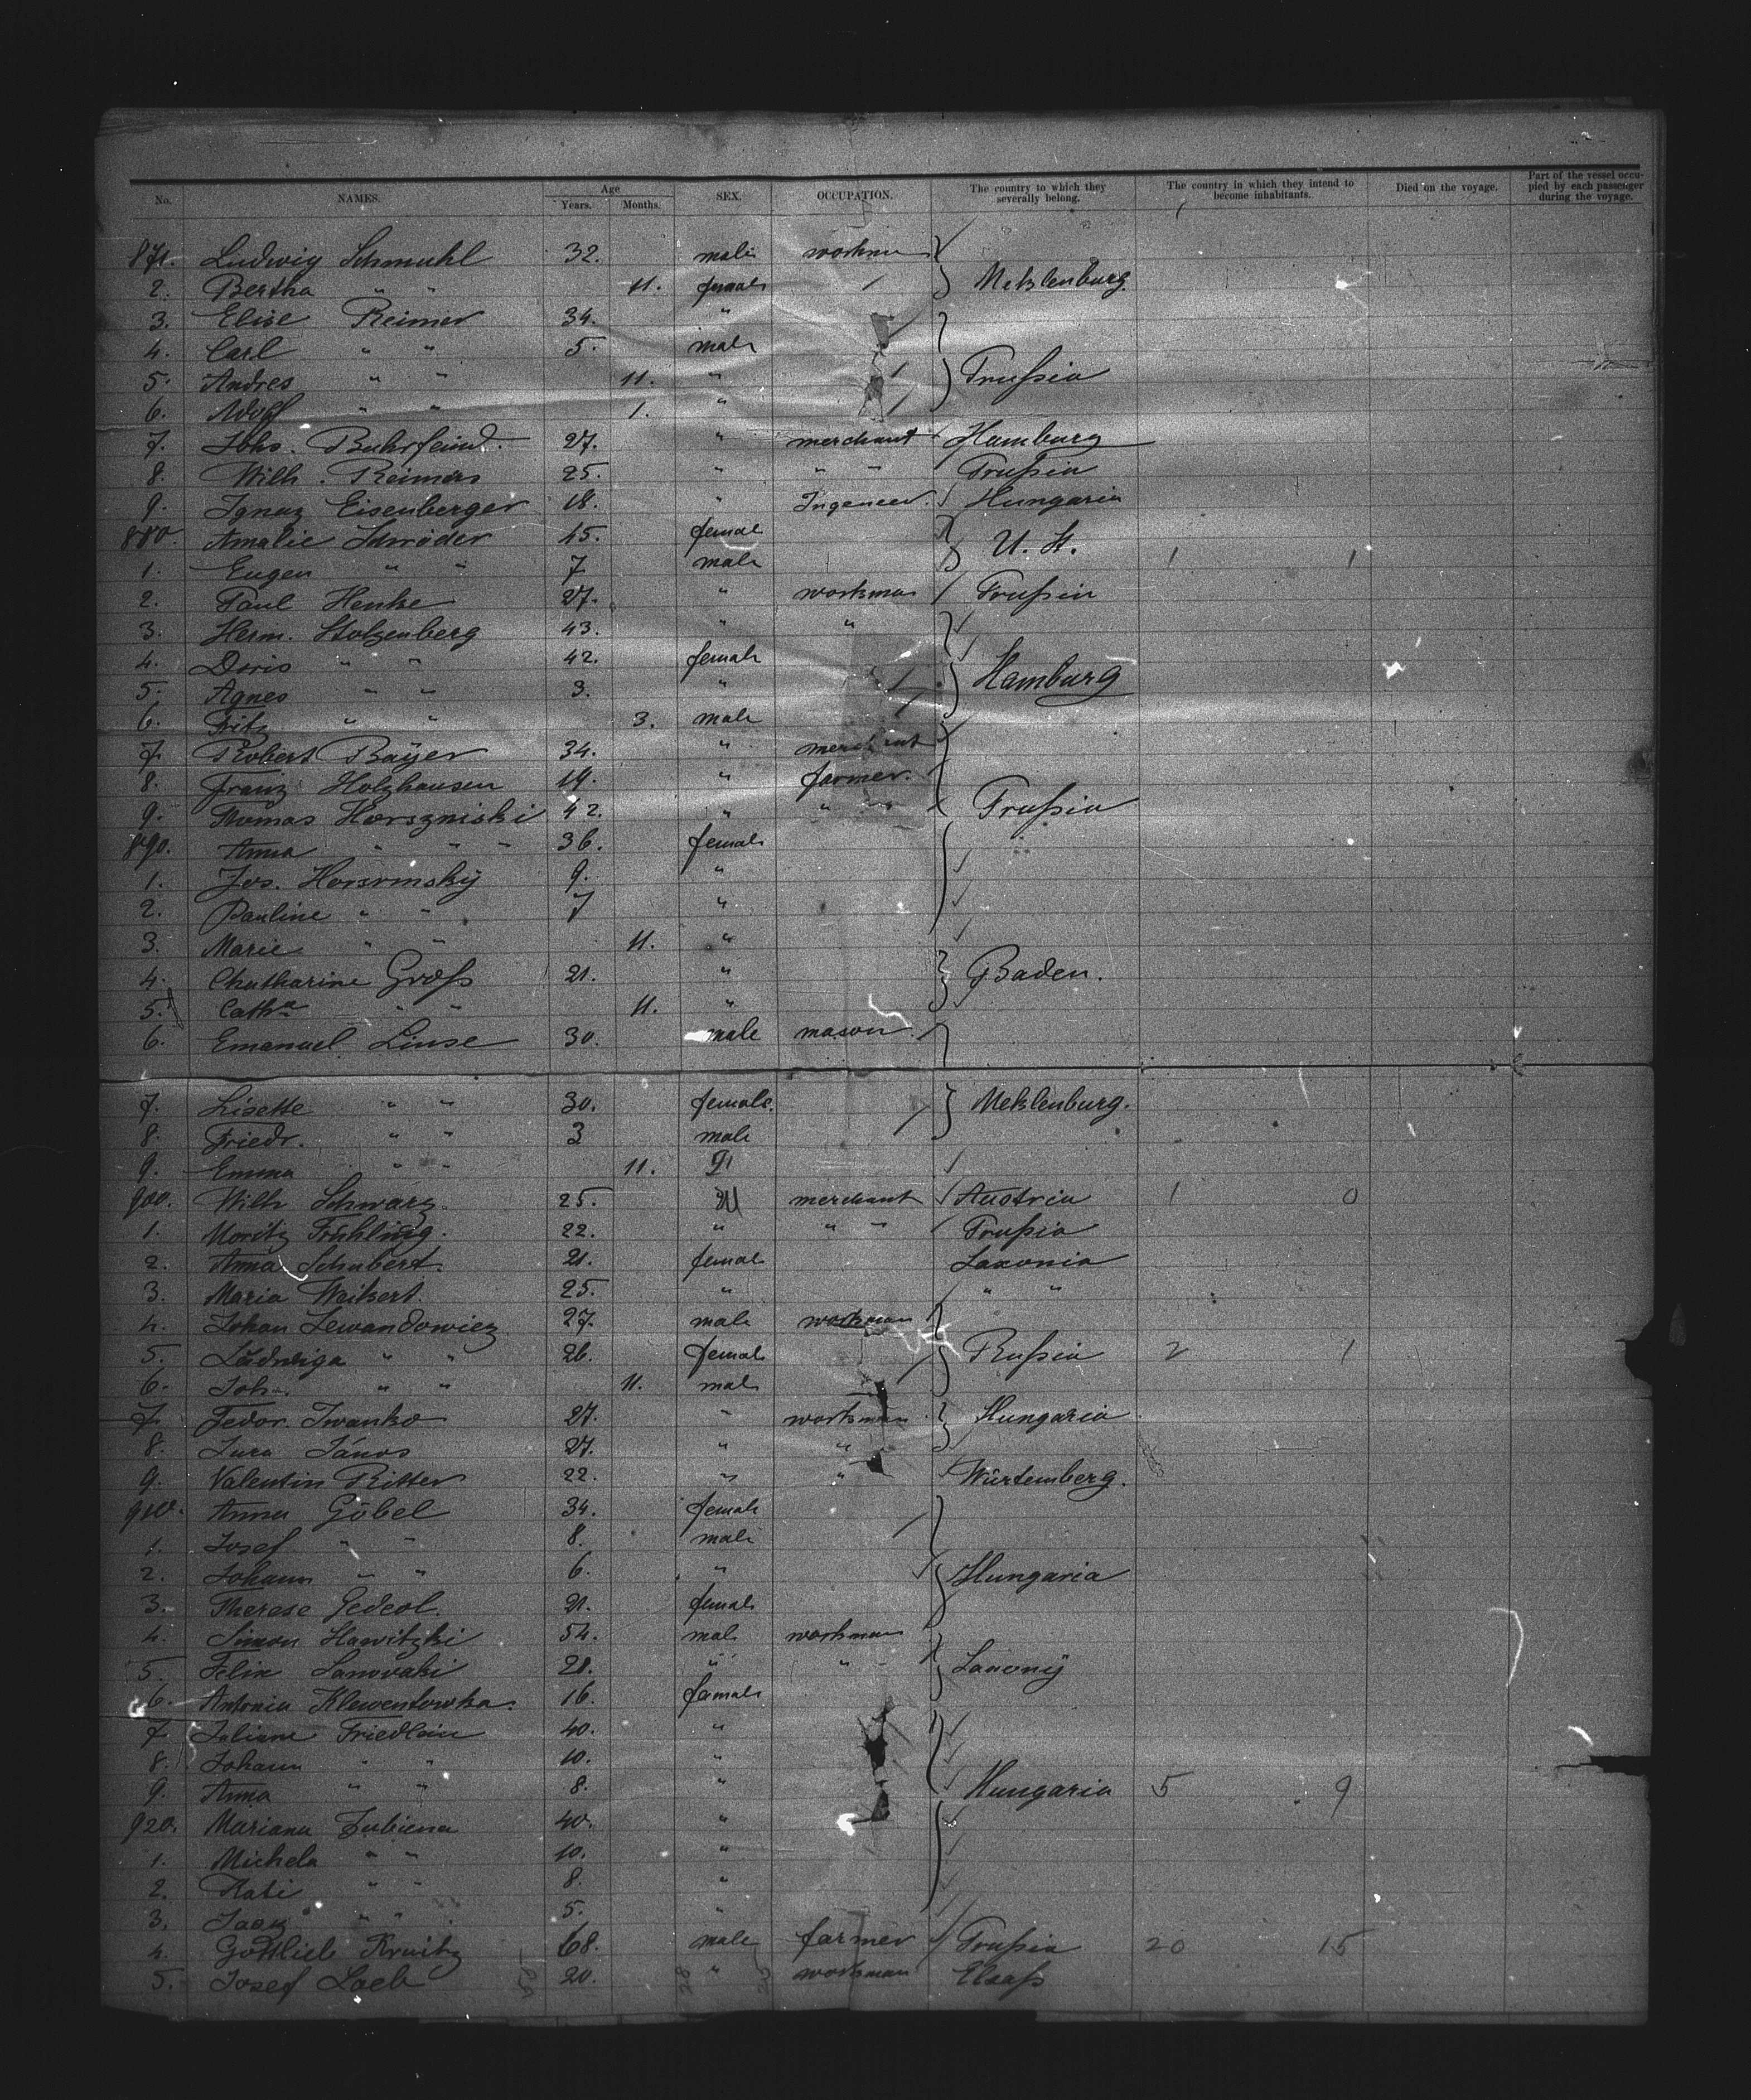 No. NAMES. Age Years. Months. SEX. OCCUPATION. The country to which they severally belong. The country in which they intend to become inhabitants. Died on the voyage. Part of the vessel occupied by each passenger during the voyage.
871. Ludwig Schmuhl 32. male workman
2. Bertha " " 11. female Meklenburg.
3. Elise Reimer 34. "
4. Carl " " 5. male
5. Andres " " 11. " Prußia
6. Adolf " " 1. "
7. Johs. Buhrfeind. 27. " merchant Hamburg
8. Wilh. Reimers 25. " " " Prußia
9. Ignaz Eisenberger 18. " Ingeneer. Hungaria
880. Amalie Schröder 45. female U. St.
1. Eugen " " 7 male 1 1
2. Paul Henke 27. " workman Prußia
3. Herm. Stolzenberg 43. " "
4. Doris " " 42. female Hamburg
5. Agnes " " 3. "
6. Fritz " " 3. male
7. Robert Bayer 34. " merchant
8. Franz Holzhausen 19. " farmer.
9. Thomas Horszniski 42. " " " Prußia
890. Anna " " " 36. female
1. Jos. Horsrinsky 9. "
2. Pauline " " 7 "
3. Marie " " 11. "
4. Chatharine Groß 21. " Baden.
5. Cath " " 11. "
6. Emanuel Linse 30. male mason.
7. Lisette " " 30. female. Meklenburg.
8. Friedr. " " 3 male
9. Emma " " 11. F
900. Wilh Schwarz. 25. M merchant Austria 1 0
1. Moritz Frühling. 22. " " " Prußia
2. Anna Schubert. 21. female Saxonia
3. Maria Weikert. 25. " " "
4. Johan Lewandowicz 27. male workman
5. Ludwiga " " 26. female Rußia 2 1
6. Joh. " " 11. male
7. Fedor Iwanko 27. " workman Hungaria
8. Jura János 27. " "
9. Valentin Ritter 22. " " Würtemberg.
910. Anna Göbel 34. female
1. Josef " " 8. male
2. Johann " " 6. " Hungaria
3. Therese Gedeol. 21. female
4. Simon Hawitzki 54. male workman
5. Felix Sanovski 28. " " Saxony
6. Antonia Klewentowska. 16. female
7. Juliane Friedlein 40. "
8. Johann " " 10. "
9. Anna " " 8. " Hungaria 5 9
920. Mariana Fubiena 40. "
1. Michela " " 10. "
2. Kati " " 8. "
3. " " 5. "
4. Gottlieb 68. male farmer Prußia 20 15
5. Josef Laeb 20. " workman Elsaß